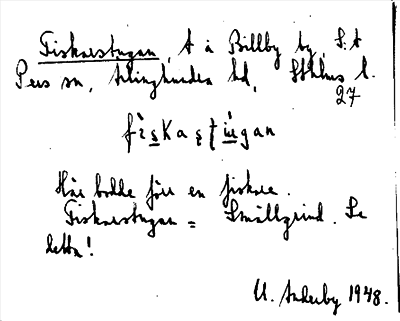 Fiskarstugan, t å Billby by, S:t
Pers sn, Ärlinghundra hd, Sthlms l.
27
fìskaştùgan
Här bodde förr en fiskare.
Fiskarstugan = Smällgrind. Se
detta!
U. Anderby 1948.